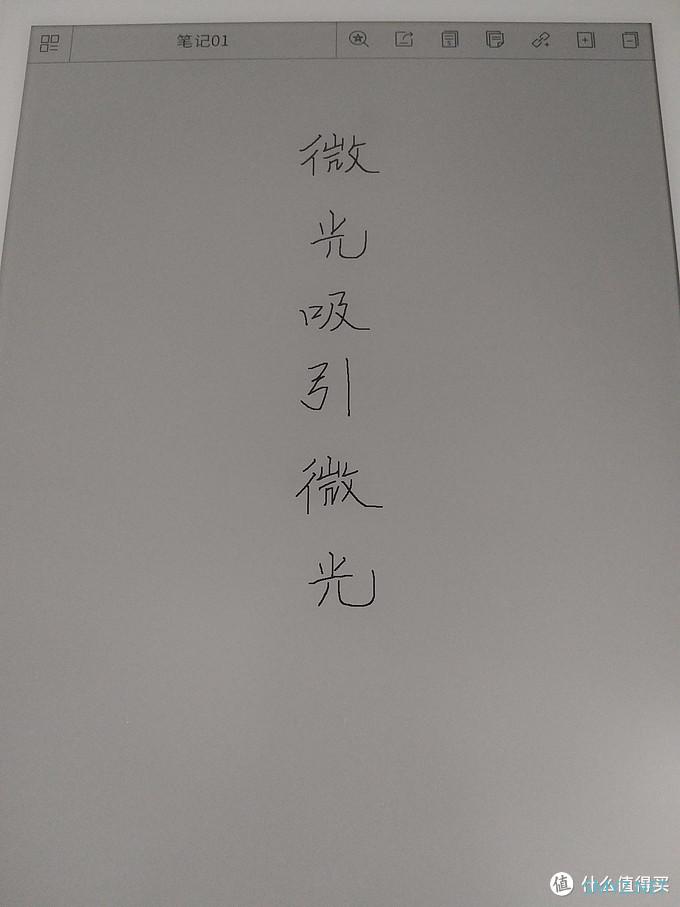 笔记01
微
光
吸
引
微
光
值 什么值得买